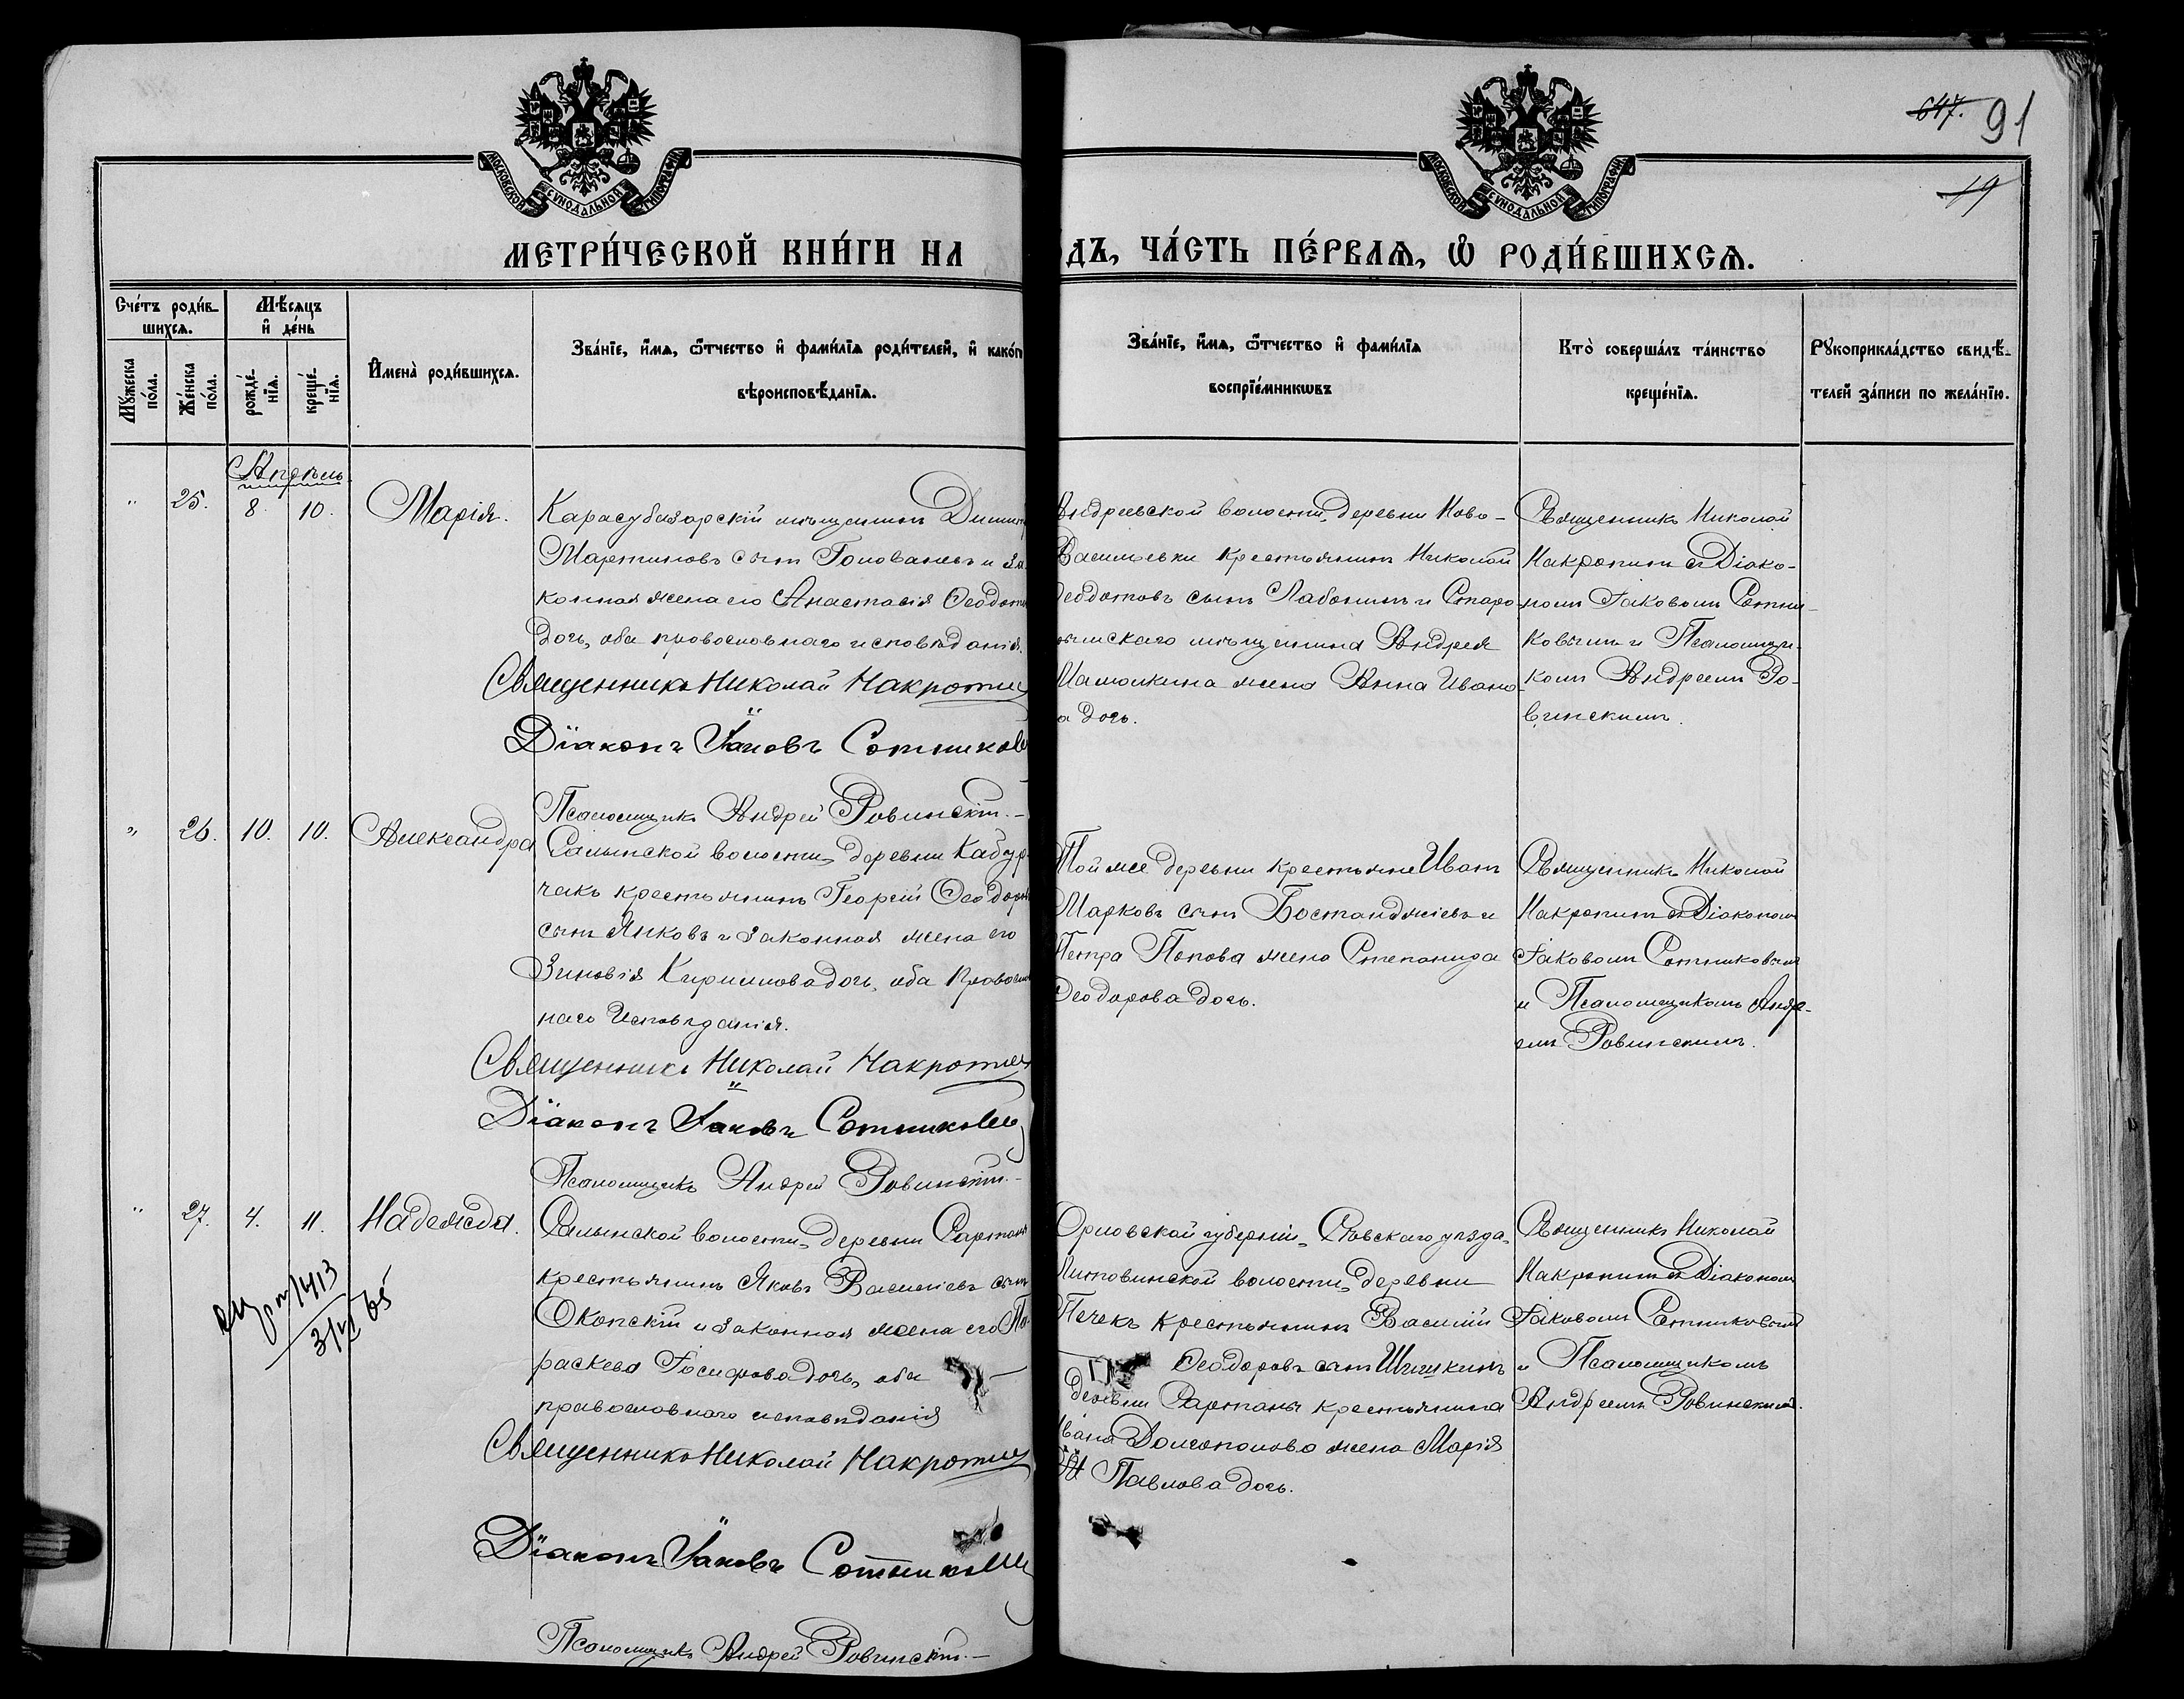 647. 91
19
МОСКОВСКОЙ СѴНОДАЛЬНОЙ ТИПОГРАФІИ
МОСКОВСКОЙ СѴНОДАЛЬНОЙ ТИПОГРАФІИ
МЕТРИ́ЧЕСКОЙ КНИ́ГИ НА
ДЪ, ЧА́СТЬ ПЕ́РВАѦ, Ѡ РОДИ́ВШИХСѦ.
Сче́тъ роди́в-
шихсѧ.
Мꙋ́жеска по́ла.
Же́нска по́ла.
Мѣ́сѧцъ
и҆ де́нь
рожде́-
нїѧ.
креще́-
нїѧ.
И҆мена̀ роди́вшихсѧ.
Зва́нїе, и҆́мѧ, ѻ҆́тчество и҆ фами́лїѧ роди́телей, и҆ како́г
вѣроисповѣ́данїѧ.
Зва́нїе, и҆́мѧ, ѻ҆́тчество и҆ фами́лїѧ
воспрїе́мникѡвъ
Кто̀ соверша́лъ та́инство
креще́нїѧ.
Рꙋкоприкла́дство свидѣ́-
телей за́писи по жела́нїю.
Апрѣль
" 25. 8 10. Марія.
Карасубазарскій мѣщанинъ Димит
Мартиновъ сынъ Голованевъ и за
конная жена его Анастасія Ѳеодот
дочь, оба православнаго исповѣданія.
Священникъ Николай Накропин
Діаконъ Іаковъ Сотников
Псаломщикъ Андрей Ровинскій.
Андреевской волости, деревни Ново-
Васильевки крестьянинъ Николай
Ѳеодотовъ сынъ Лабонинъ и Старо-
мѣщанина Андрея
жена Анна Ивано-
а дочь.
Священникъ Николай
Накропинъ съ Діако-
номъ Іаковомъ Сотни-
ковымъ и Псаломщи-
комъ Андреемъ Ро-
винскимъ.
" 26. 10. 10. Александра
Салынской волости, деревни Кабур-
чакъ крестьянинъ Георгій Ѳеодор
сынъ Янковъ и законная жена его
Зиновія Кириллова дочь, оба Правосл
наго Исповѣданія.
Священникъ Николай Накропин
Діаконъ Іаковъ Сотников
Псаломщикъ Андрей Ровинскій.
Той же деревни крестьяне Иванъ
Марковъ сынъ Бостанджіевъ и
Петра Попова жена Степанида
Ѳеодорова дочь.
Священникъ Николай
Накропинъ съ Діакономъ
Іаковомъ Сотниковымъ
и Псаломщикомъ Андре-
емъ Ровинскимъ.
" 27. 4. 11. Надежда.
1413
3/VI 65
Салынской волости, деревни Сартана
крестьянинъ Яковъ Васильевъ сынъ
Окопскій и законная жена его Па-
раскева Іосифова дочь, оба
православнаго исповѣданія
Священникъ Николай Накропин
Діаконъ Іаковъ Сотников
Псаломщикъ Андрей Ровинскій.
Орловской губерніи, Сѣвскаго уѣзда,
Литовинской волости, деревни
Печекъ крестьянинъ Василій
Ѳеодоровъ сынъ Шишкинъ
деревни Сартаны крестьянина
Ивана Долгополова жена Марія
Павлова дочь.
Священникъ Николай
Накропинъ съ Діакономъ
Іаковомъ Сотниковымъ
и Псаломщикомъ
Андреемъ Ровинскимъ.